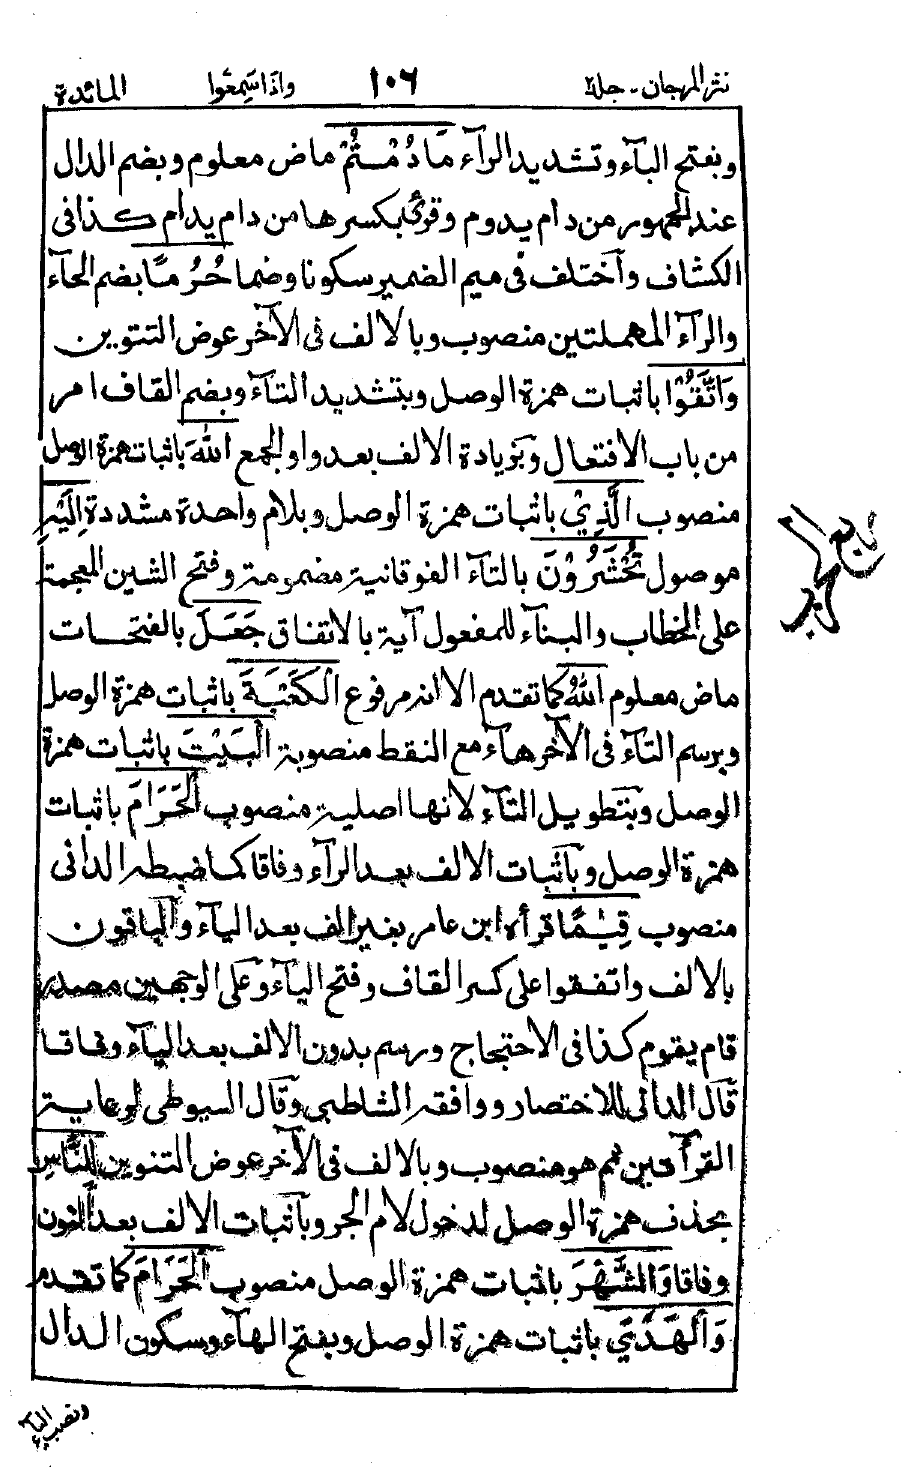 نثر المرجان - جلد٢ ١٠٦ واذا سمعوا المائدة
وبفتح البآء وتشديد الرآء مَادُمْتُمْ ماض معلوم وبضم الدال
عند الجمهور من دام يدوم وقرئ بكسرها من دام يدام كذا فى
الكشاف وآختلف فى ميم الضمير سكونا وضما حُرُمًا بضم الحآء
والرآء المهملتين منصوب وبالالف فى الآخر عوض التنوين
وَاتَّقُوا باثبات همزة الوصل وبتشديد التآء وبضم القاف امر
من باب الافتعال وبزيادة الالف بعد واو الجمع اللهَ باثبات همزة الوصل
منصوب الَّذِيْ باثبات همزة الوصل وبلام واحدة مشددة اِلَيْهِ
موصول تُحْشَرُوْنَ بالتآء الفوقانية مضمومة وفتح الشين المعجمة
على الخطاب والبنآء للمفعول آية بالاتفاق جَعَلَ بالفتحات
ماض معلوم اللهُ كما تقدم الا انه مرفوع الْكَعْبَةَ باثبات همزة الوصل
وبرسم التآء فى الآخر هآء مع النقط منصوبة الْبَيْتَ باثبات همزة
الوصل وبتطويل التآء لانها اصلية منصوب الْحَرَامَ باثبات
همزة الوصل وبآثبات الالف بعد الرآء وفاقا كما ضبطه الدانى
منصوب قِيٰمًا قرأه ابن عامر بغير الف بعد اليآء والباقون
بالالف واتفقوا على كسر القاف وفتح اليآء وعلى الوجهين مصدر
قام يقوم كذا فى الاحتجاج ورسم بدون الالف بعد اليآء وفاقا
قال الدانى للاختصار ووافقه الشاطبى وقال السيوطى لرعاية
القرآءتين ثم هو منصوب وبالالف فى الآخر عوض التنوين لِلنَّاسِ
بحذف همزة الوصل لدخول لام الجر وبآثبات الالف بعد النون
وفاقا وَالشَّهْرَ باثبات همزة الوصل منصوب الْحَرَامَ كما تقدم
وَالْهَدْيَ باثبات همزة الوصل وبفتح الهآء وسكون الدال
ونصب اليآء